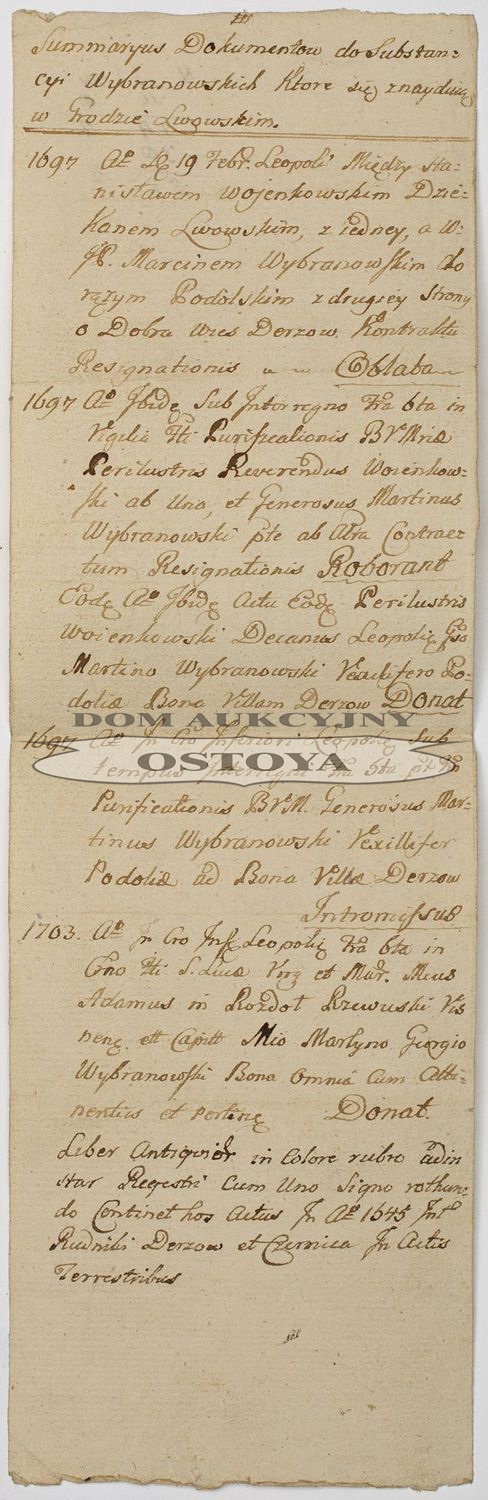 Summaryus Dokumentow do Substan=
cyi Wybranowskich Ktore się znayduią
w Grodzie Lwowskim.
1697 Aº 19 Febr. Leopoli Między Sta=
nisławem Wojenkowskim Dzie=
Kanem Lwowskim, z iedney, a W:
JP. Marcinem Wybranowskim cho
rązym Podolskim z drugiey strony
o Dobra wies Derzow. Kontraktu
Resignationis Oblata
1697 Aº Ibidę Sub Interregno fra 6ta in
Vigilia fti Purificationis B V Mriæ
Perilustris Reverendus Woienkow=
ski ab una, et Generosus Martinus
Wybranowski pte ab Altra Contrac=
tum Resignationis Roborant
Eodę Aº Ibidę Actu Eodę Perilustris
Woienkowski Decanus Leopolię Gso
Martino Wybranowski Vexillifero Po=
doliæ Bona Villam Derzow Donat
DOM AUKCYJNY
OSTOYA
1697 Aº In Cro Inferiori Leopolię Sub
tempus Interregni fra 6ta in
Purificationis B V M. Generosus Mar=
tinus Wybranowski Vexillifer
Podoliæ ad Bona Villæ Derzow
Intromissus
1703. Aº In Cro Inf Leopolię fra 6ta in
Crno fti S. Luciæ Virg et Mar.
Adamus in Rozdoł Rzewuski Vis
nenę. ett Capitt Mio Martyno Giorgio
Wybranowski Bona Omnia Cum Atti=
nentius et Pertinę Donat.
Liber Antiquior in Colore rubro adin
star Regestri Cum Uno Signo rothun=
do Continet hos Actus In Aº 1645
Rudniki Derzow et Czernica In Actis
Terrestribus